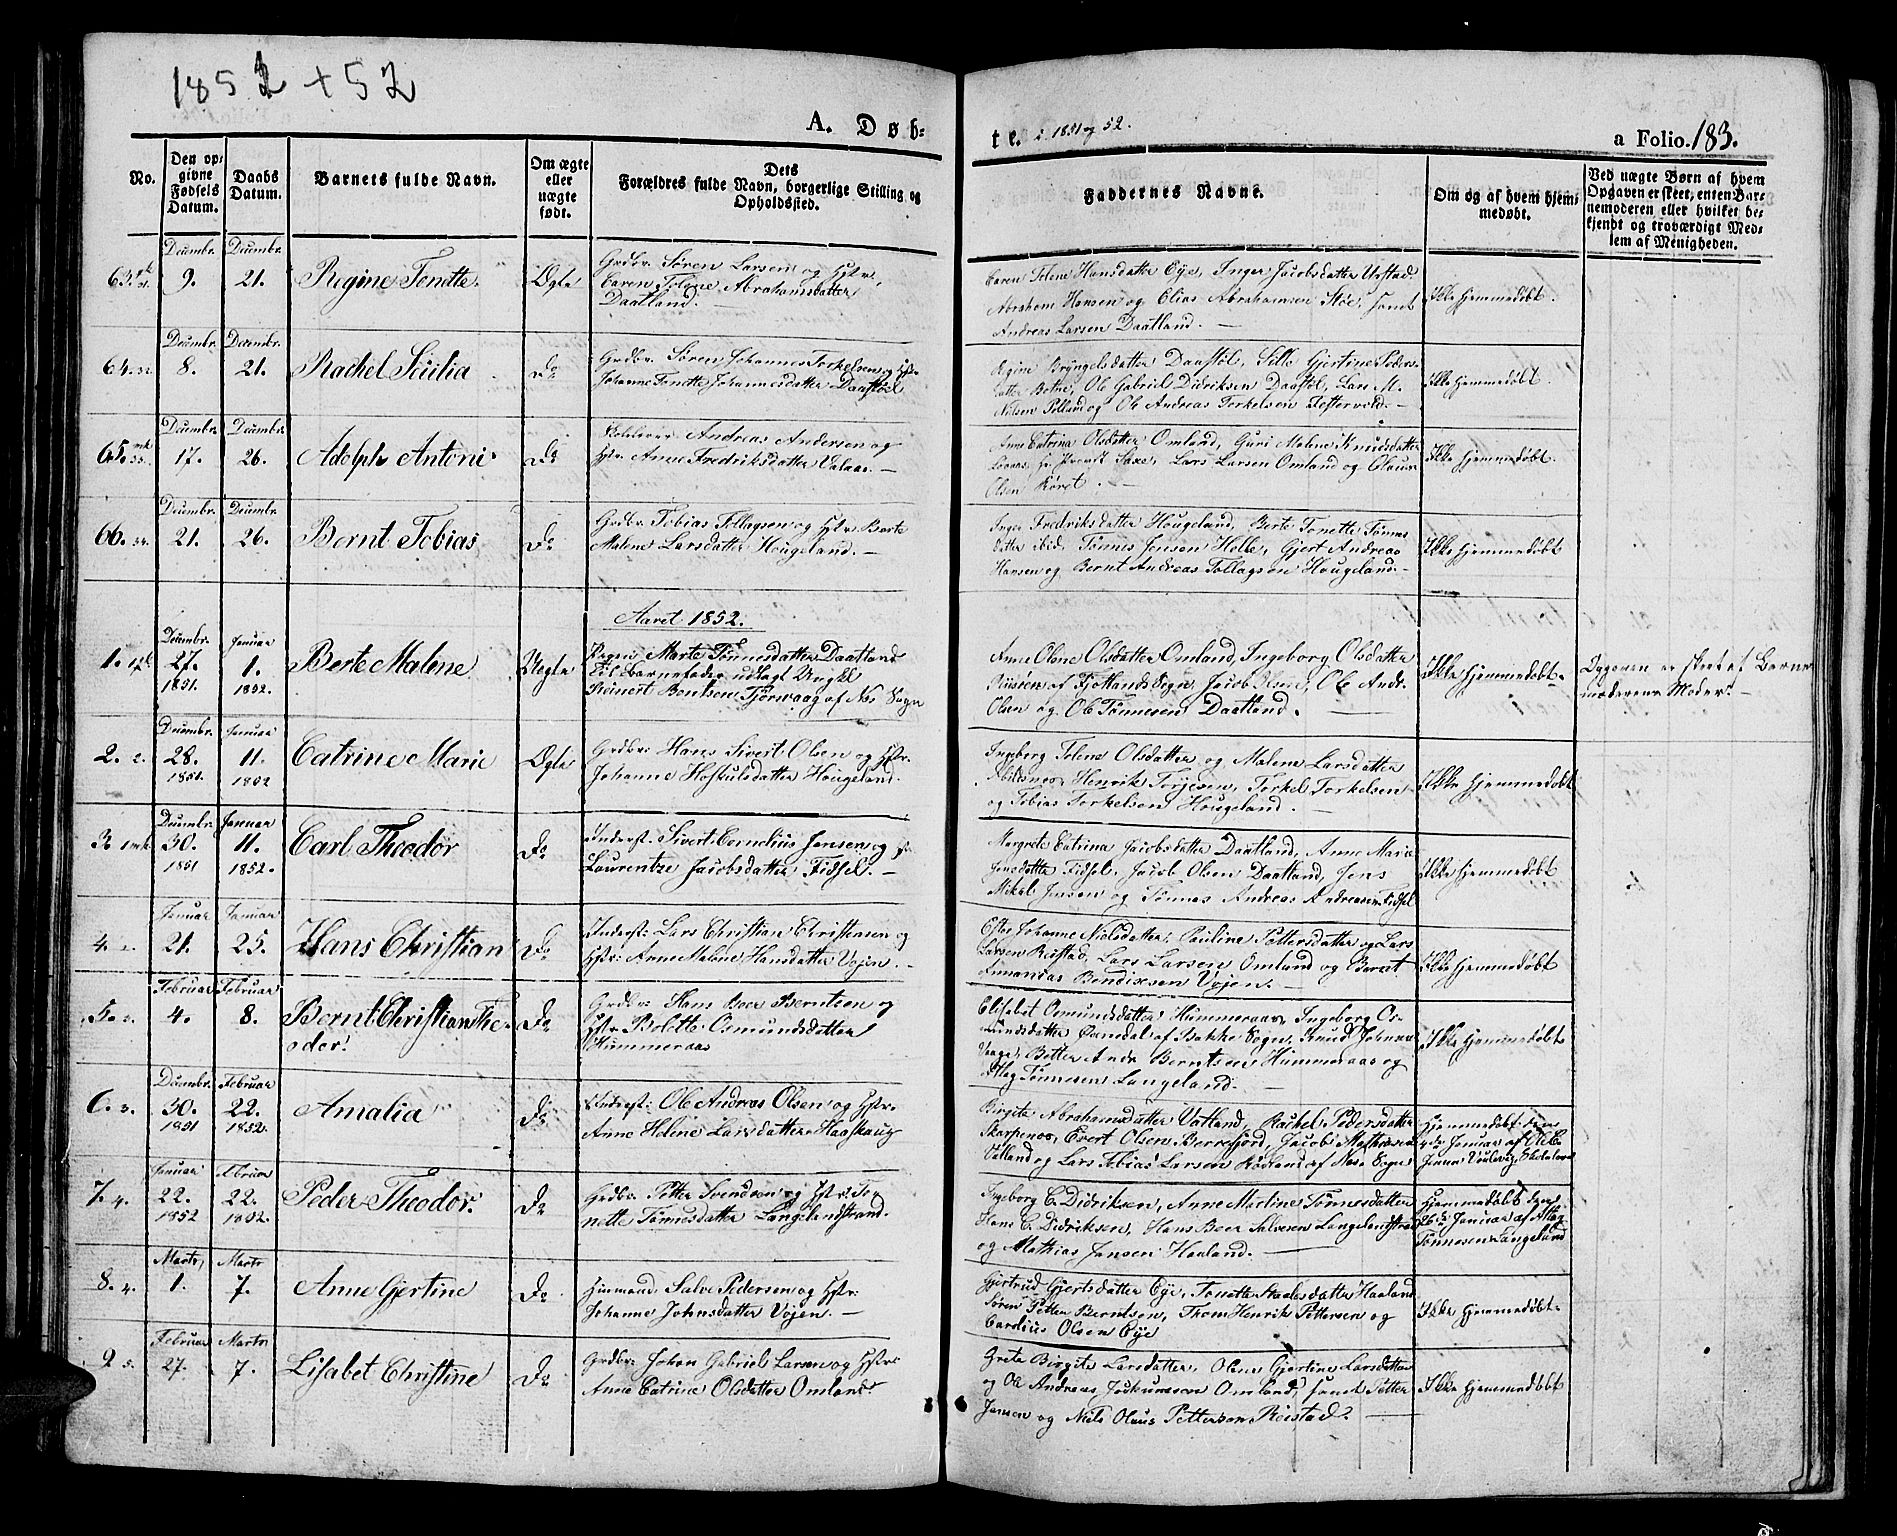 1852 + 52
A. Døb-
te. i 1851 og 52.
a Folio. 183.
No.
Den op-
givne
Fødsels
Datum.
Daabs
Datum.
Barnets fulde Navn.
Om ægte
eller
uægte
født.
Dets
Forældres fulde Navn, borgerlige Stilling og
Opholdssted.
Faddernes Navne.
Om og af hvem hjem-
medøbt.
Ved uægte Børn af hvem
Opgaven er skeet, enten Bar-
nemoderen eller hvilket be-
kjendt og troværdigt Med-
lem af Menigheden.
63. Decembr. 9. Decembr. 21. Regine Tonette. Ægte
Grdbr. Søren Larsen og Hstr.
Caren Tolene Abrahamsdatter
Daatland.
Caren Tolene Hansdatter Eye, Inger Jacobsdatter Urstad.
Abraham Hansen og Elias Abrahamsen Støe, samt
Andreas Larsen Daatland.
Ikke hjemmedøbt.
64. Decembr. 8. Decembr. 21. Rachel Sicilia Do
Grdbr. Søren Johannes Torkelsen og Hstr.
Johanne Tonette Johannesdatter Daastøl
Regine Bryngelsdatter Daastøl, Sille Gjertine Peders-
datter Botne, Ole Gabriel Didriksen Daastøl, Lars M.
Nilsen Polland og Ole Andreas Torkelsen
Ikke hjemmedøbt.
65. Decembr. 17. Decembr. 26. Adolph Antoni Do
Andreas Andersen og
Hstr. Anne Fredriksdatter Valaas.
Anne Catrina Olsdatter Omland, Guri Malene Knudsdatter
Lars Larsen Omland og Olaus
Olsen Røret.
Ikke hjemmedøbt.
66. Decembr. 21. Decembr. 26. Bernt Tobias Do
Grdbr. Tobias Tollagsen og Hstr. Berte
Malene Larsdatter Hougeland.
Inger Fredriksdatter Hougeland, Berte Tonette Tønnes
datter ibid. Tønnes Jensen Helle, Gjert Andreas
Hansen og Bernt Andreas Tollagsen Hougeland.
Ikke hjemmedøbt
Aaret 1852.
1. Decembr. 27. 1851. Januar 1. 1852. Berte Malene Uægte
Pigen Marte Tønnesdatter Daatland
Til Barnefader udlagt Ungkl.
Reinert Bentsen Tjørsvaag af Nes Sogn
Anne Olene Olsdatter Omland, Ingeborg Olsdatter
af Fjotlands Sogn, Jacob Olsen, Ole Andr.
Olsen og Ole Tønnesen Daatland.
Ikke hjemmedøbt
Opgaven er skeet af Barne-
moderens Moder.
2. Decembr. 28. 1851. Januar 11. 1852 Catrine Marie Ægte
Grdbr. Hans Sivert Olsen og Hstr.
Johanne Hostulsdatter Hougeland.
Ingeborg Tolene Olsdatter og Malene Larsdatter
Abilsnes, Henrik Torjesen, Torkel Torkelsen
og Tobias Torkelsen Hougeland.
Ikke hjemmedøbt
3. Decembr. 30. 1851 Januar 11. 1852. Carl Theodor Do
Inderst. Sivert Cornelius Jensen og
Laurentze Jacobsdatter Fidsel.
Margrete Catrina Jacobsdatter Daatland, Anne Marie
Jensdatter Fidsel, Jacob Olsen Daatland, Jens
Mikel Jensen og Tønnes Andreas Andreasen Fidsel
Ikke hjemmedøbt
4. Januar 21. Januar 25. Hans Christian Do
Inderst: Lars Christian Christensen og
Hstr: Anne Malene Hansdatter Vøjen.
Ester Johanne Nielsdatter, Pauline Pettersdatter og Lars
Larsen Reistad, Lars Larsen Omland og Bernt
Annanias Bendixsen Vøjen.
Ikke hjemmedøbt
5. Februar 4. Februar 8. Bernt Christian The-
odor. Do
Grdbr: Hans Beer Berntsen og
Hstr. Bolette Osmundsdatter
Hummeraas
Elisabet Osmundsdatter Hummeraas, Ingeborg Os-
mundsdatter af Bakke Sogn, Knud Johnsen
Vaage, Petter Andr. Berntsen Hummeraas og
Atlag Tønnesen Langeland.
Ikke hjemmedøbt
6. Decembr. 30. 1851 Februar 22. 1852. Amalia Do
Inderst: Ole Andreas Olsen og Hstr.
Anne Helene Larsdatter Haaskaug
Birgita Abrahamsdatter Vatland, Rachel Pedersdatter
Skarpenes, Evert Olsen Berrefjord, Jacob Mathiasen
Vatland og Lars Tobias Larsen Rødland af Nes Sogn
Hjemmedøbt den
Januar af Ole
Jensen
7. Januar 22. 1852 Februar 22. 1852. Peder Theodor. Do
Grdbr. Petter Svendsen og Hstr. To-
nette Tønnesdatter Langelandstrand.
Ingeborg C. Didriksen, Anne Martine Tønnesdatter
Hans C. Didriksen, Hans Beer Salvesen Langelandstrand
og Mathias Jansen Haaland.
Hjemmedøbt den
26de Januar af Atlag
Tønnesen Langeland
8. Marts 1. Marts 7. Anne Gjertine Do
Huusmand Salve Pedersen og Hstr:
Johanne Johnsdatter Vøjen.
Gjertrud Gjertsdatter Eye, Tonette Staalesdatter Haaland
Søren Petter Berntsen, Thom Henrik Pettersen og
Cardius Olsen Eye
Ikke hjemmedøbt
9. Februar 27. Marts 7. Lisabet Christine Do
Grdbr: Johan Gabriel Larsen og Hstr:
Anne Catrine Olsdatter Omland.
Grete Birgita Larsdatter, Olene Gjertine Larsdatter
og Ole Andreas Jochumsen Omland, samt Petter
Jansen og Niels Olaus Pettersen Reistad.
Ikke hjemmedøbt